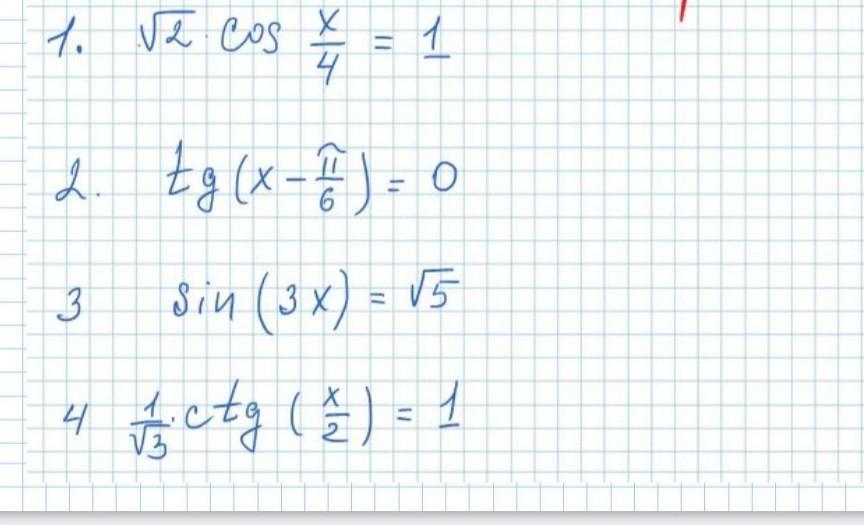 1. √2 · cos x/4 = 1
2. tg(x - π/6) = 0
3 sin(3x) = √5
4 1/√3 · ctg(x/2) = 1